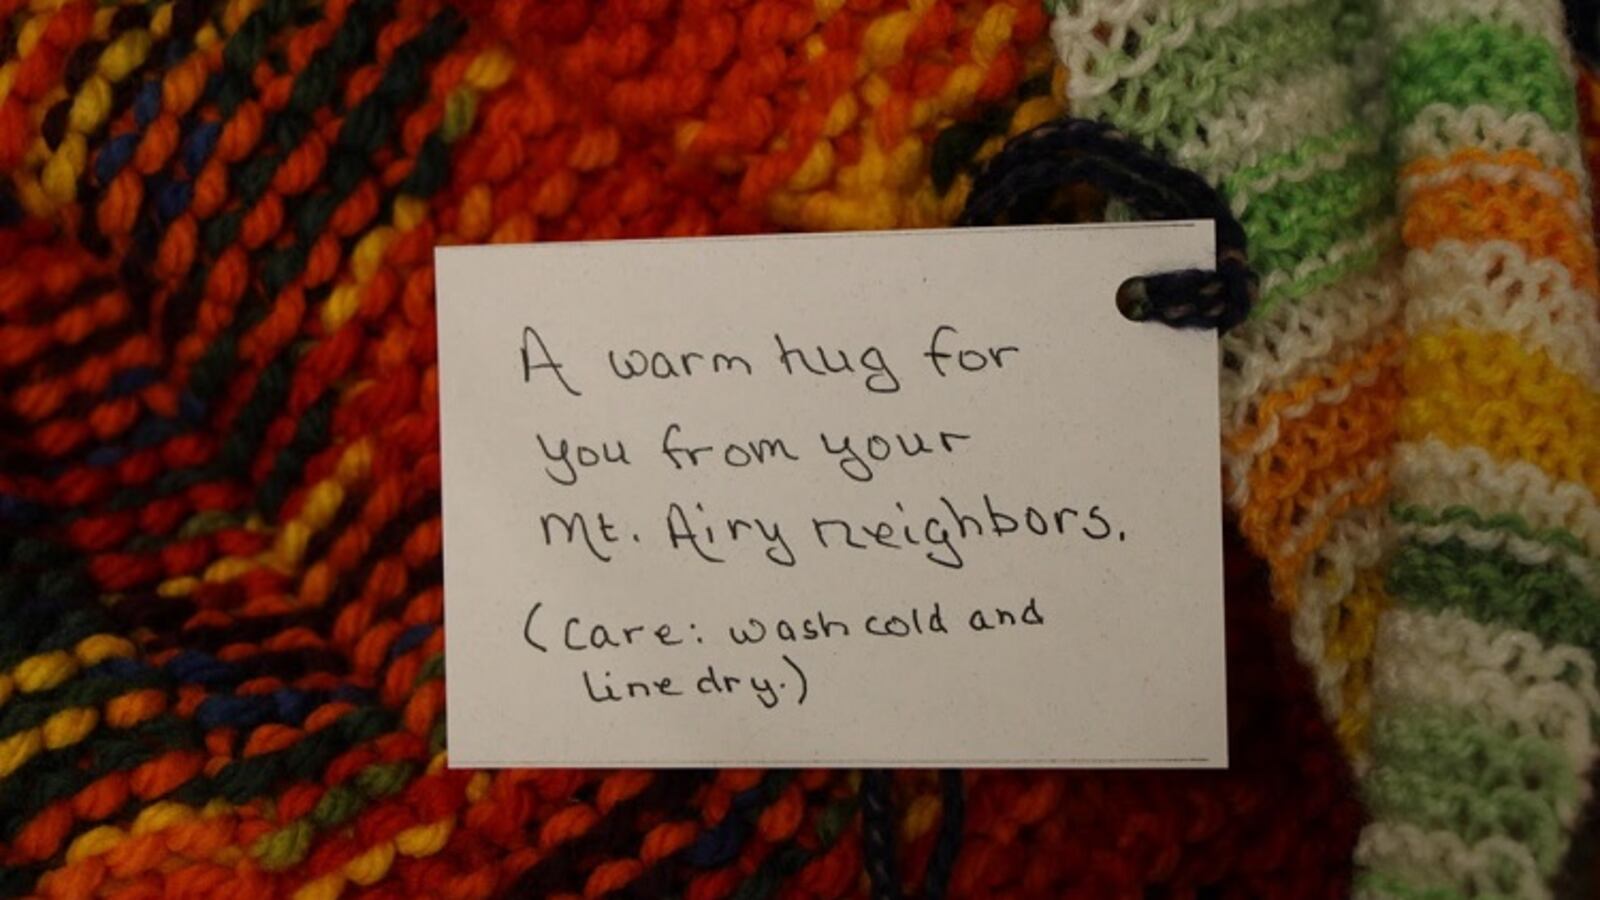 A warm hug for
you from your
Mt. Airy neighbors.
(Care: wash cold and
line dry.)